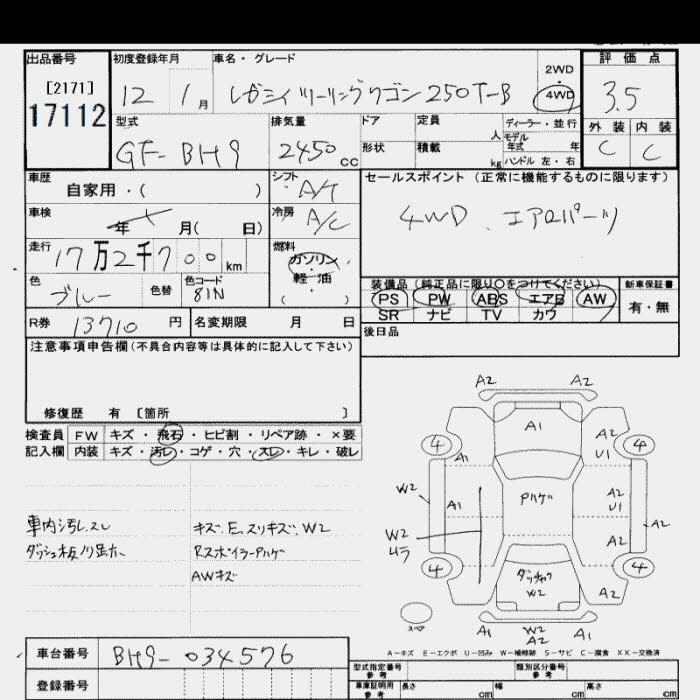 出品番号 初度登録年月 車名・グレード 2WD 評価点
[2171] 12 1月 レガシィツーリングワゴン250T-B ・ 4WD 3.5
17112
型式 排気量 ドア 定員 人 ディーラー・並行 外装 内装
GF-BH9 2450cc 形状 積載 kg モデル年式 年 C C
ハンドル 左・右
車歴 自家用・( ) シフト A/T セールスポイント(正常に機能するものに限ります)
車検 年 月( 日) 冷房 A/C 4WD、エアロパーツ
走行 17万2千700km 燃料 ガソリン・軽油 ( )
色 ブルー 色替 色コード 81N
装備品(純正品に限り○をつけてください) 新車保証書
PS PW ABS エアB AW 有・無
SR ナビ TV カワ
R券 13710円 名変期限 月 日 後日品
注意事項申告欄(不具合内容等は具体的に記入して下さい)
修復歴 有 [箇所 ]
検査員 FW キズ・飛石・ヒビ割・リペア跡・×要
記入欄 内装 キズ・汚レ・コゲ・穴・スレ・キレ・破レ
車内汚レスレ キズ、E、スリキズ、W2
ダッシュ板ノリ跡ホ Rスポイラーアハゲ
AWキズ
A2 A2
A1
4 A2 4
A1 U1
W2 A1 Pハゲ A2
U1
W2 A2 A2
ムラ
4 ダッチャク 4
W2 A2
スペア A1 W2 A1
A2
A-キズ E-エクボ U-凹み W-補修跡 S-サビ C-腐食 XX-交換済
車台番号 BH9-034576
登録番号
型式指定番号 参考 類別区分番号 参考
車庫証明用 参考 長さ cm 幅 cm 高さ cm